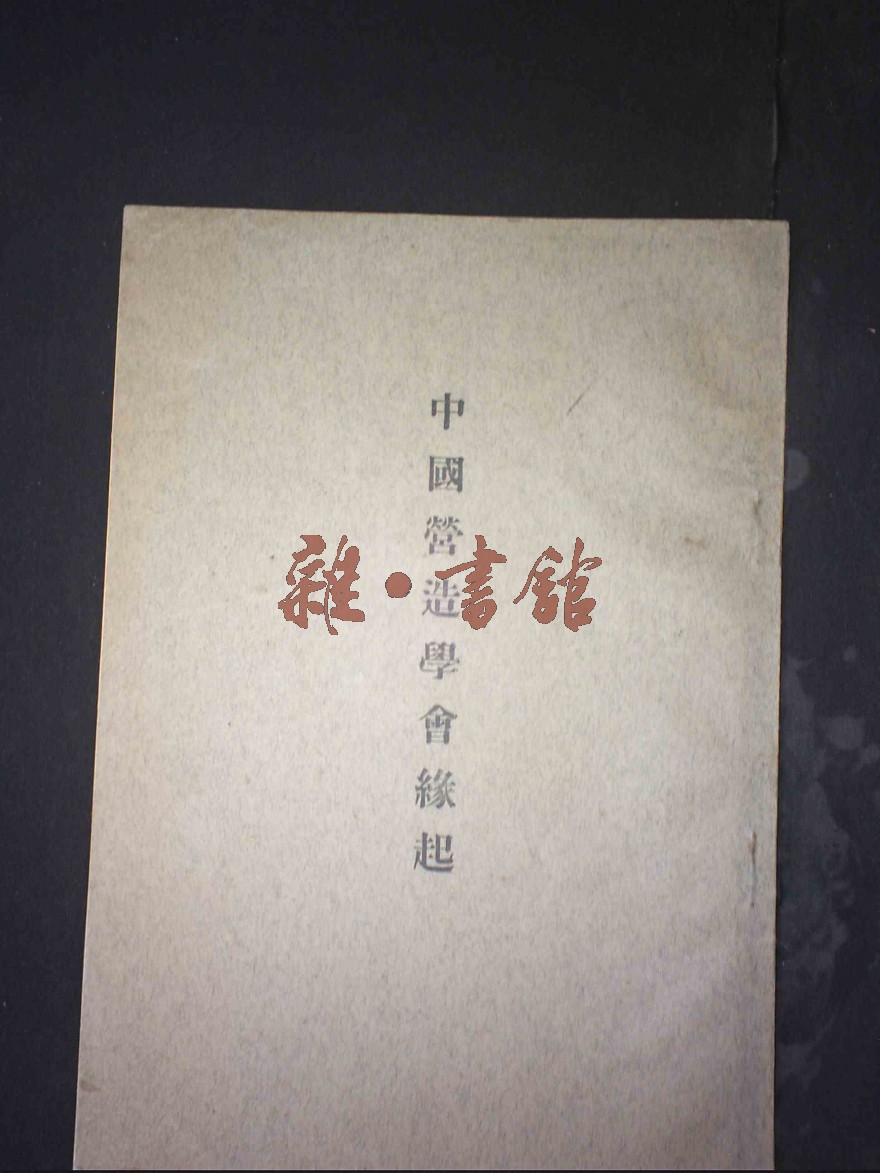 中國營造學會緣起
雜·書館